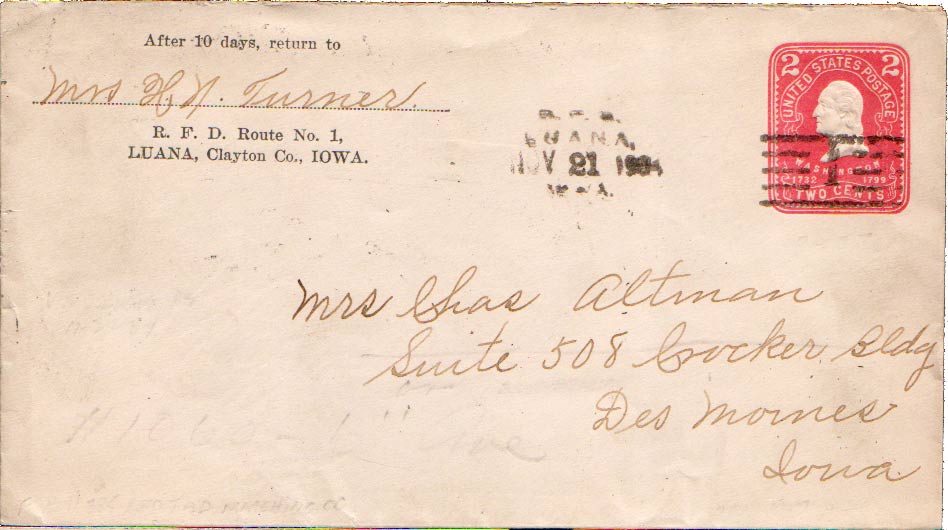 After 10 days, return to
Mrs H. N. Turner.
R. F. D. Route No. 1,
LUANA, Clayton Co., IOWA.
LUANA,
NOV 21 1904
2 2
UNITED STATES POSTAGE
WASHINGTON
1732 1799
TWO CENTS
1
Mrs Chas Altman
Suite 508 Crocker Bldg
Des Moines
Iowa
Ave